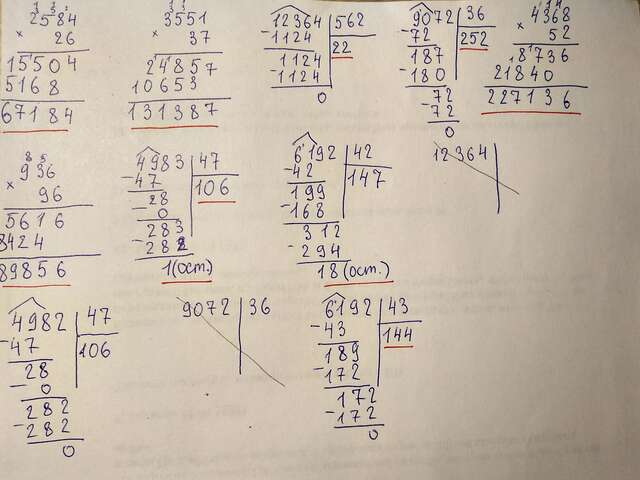 2584
× 26
15504
5168
67184
3551
× 37
24857
10653
131387
12364 | 562
-1124 | 22
1124
-1124
0
9072 | 36
-72 | 252
187
-180
72
-72
0
4368
× 52
8736
21840
227136
936
× 96
5616
8424
89856
4983 | 47
-47 | 106
28
-0
283
-282
1(ост.)
6192 | 42
-42 | 147
199
-168
312
-294
18(ост.)
12364
4982 | 47
-47 | 106
28
-0
282
-282
0
9072 | 36
6192 | 43
-43 | 144
189
-172
172
-172
0